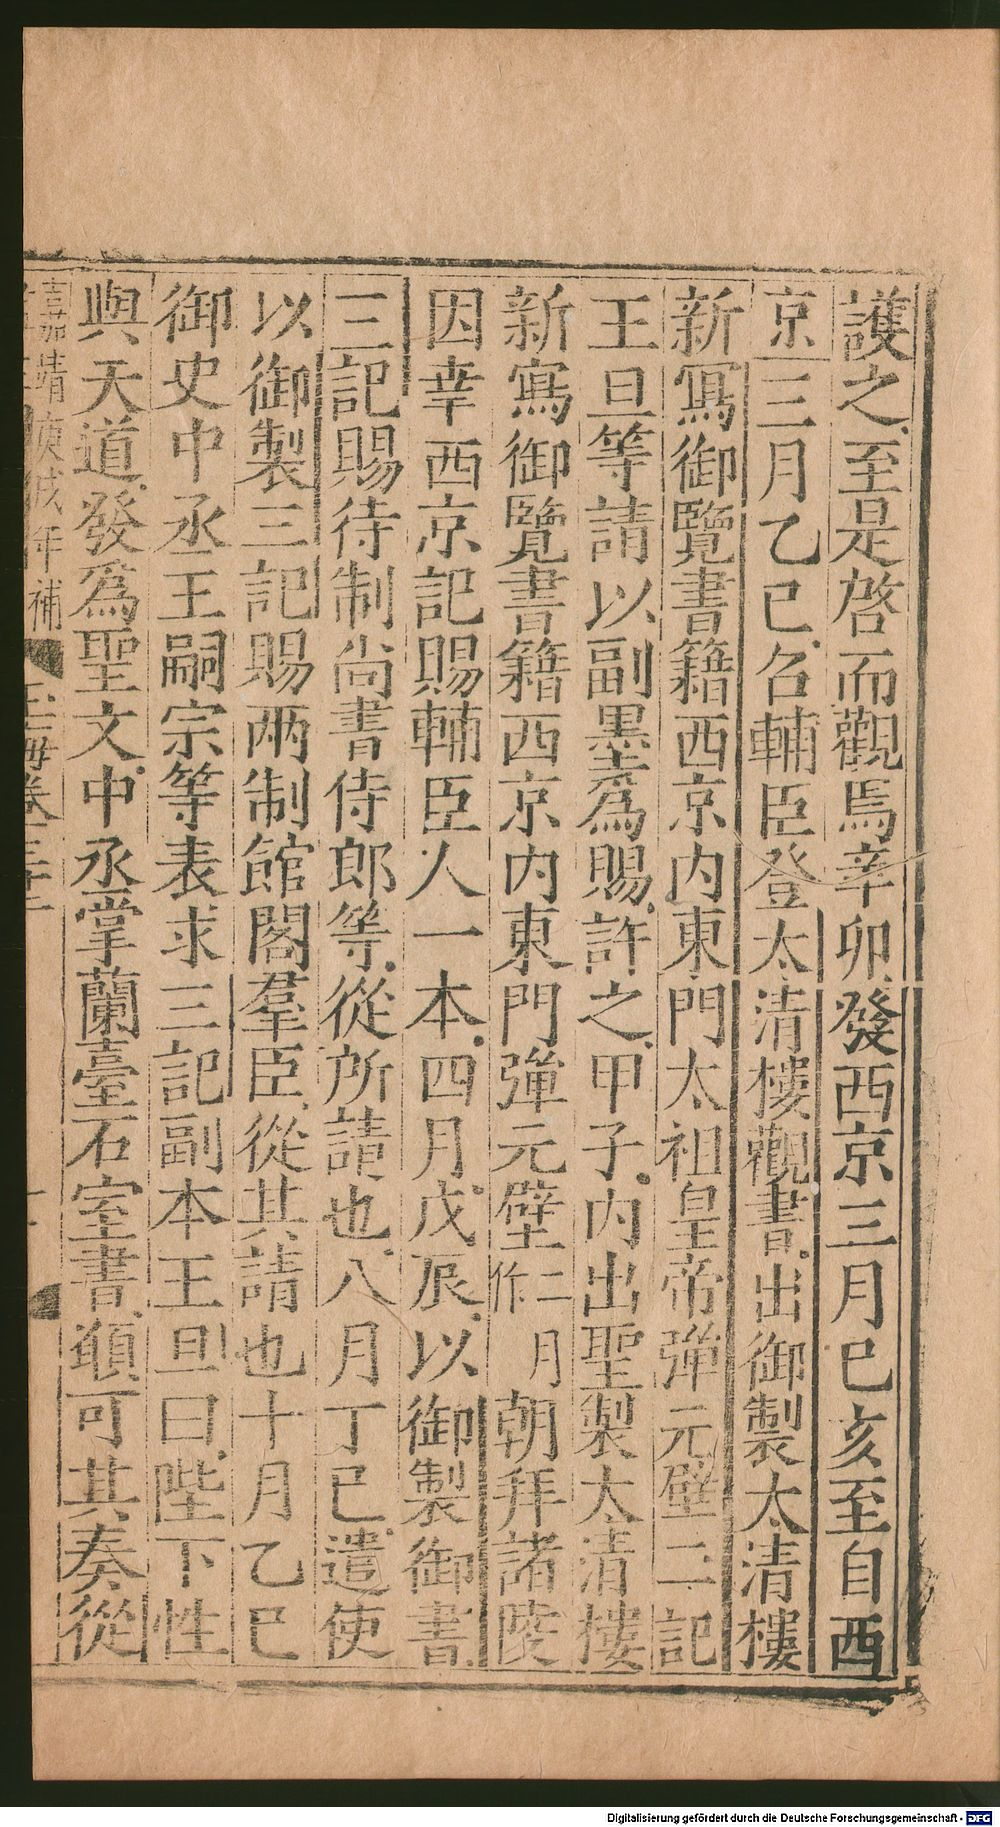 護之至是啓而觀焉辛卯發西京三月巳亥至自西
京三月乙巳召輔臣登太清樓觀書出御製太清樓
新寫御覽書籍西京内東門太祖皇帝彈元壁二記
王旦等請以副墨爲賜許之甲子内出聖製太清樓
新寫御覽書籍西京内東門彈元壁作二月朝拜諸陵
因幸西京記賜輔臣人一本四月戊辰以御製御書
三記賜待制尚書侍郎等從所請也八月丁巳遣使
以御製三記賜兩制館閣羣臣從其請也十月乙巳
御史中丞王嗣宗等表求三記副本王旦曰陛下性
與天道發爲聖文中丞掌蘭臺石室書頒可其奏從
嘉靖庚戌年補
玉海卷三十
Digitalisierung gefördert durch die Deutsche Forschungsgemeinschaft - DFG